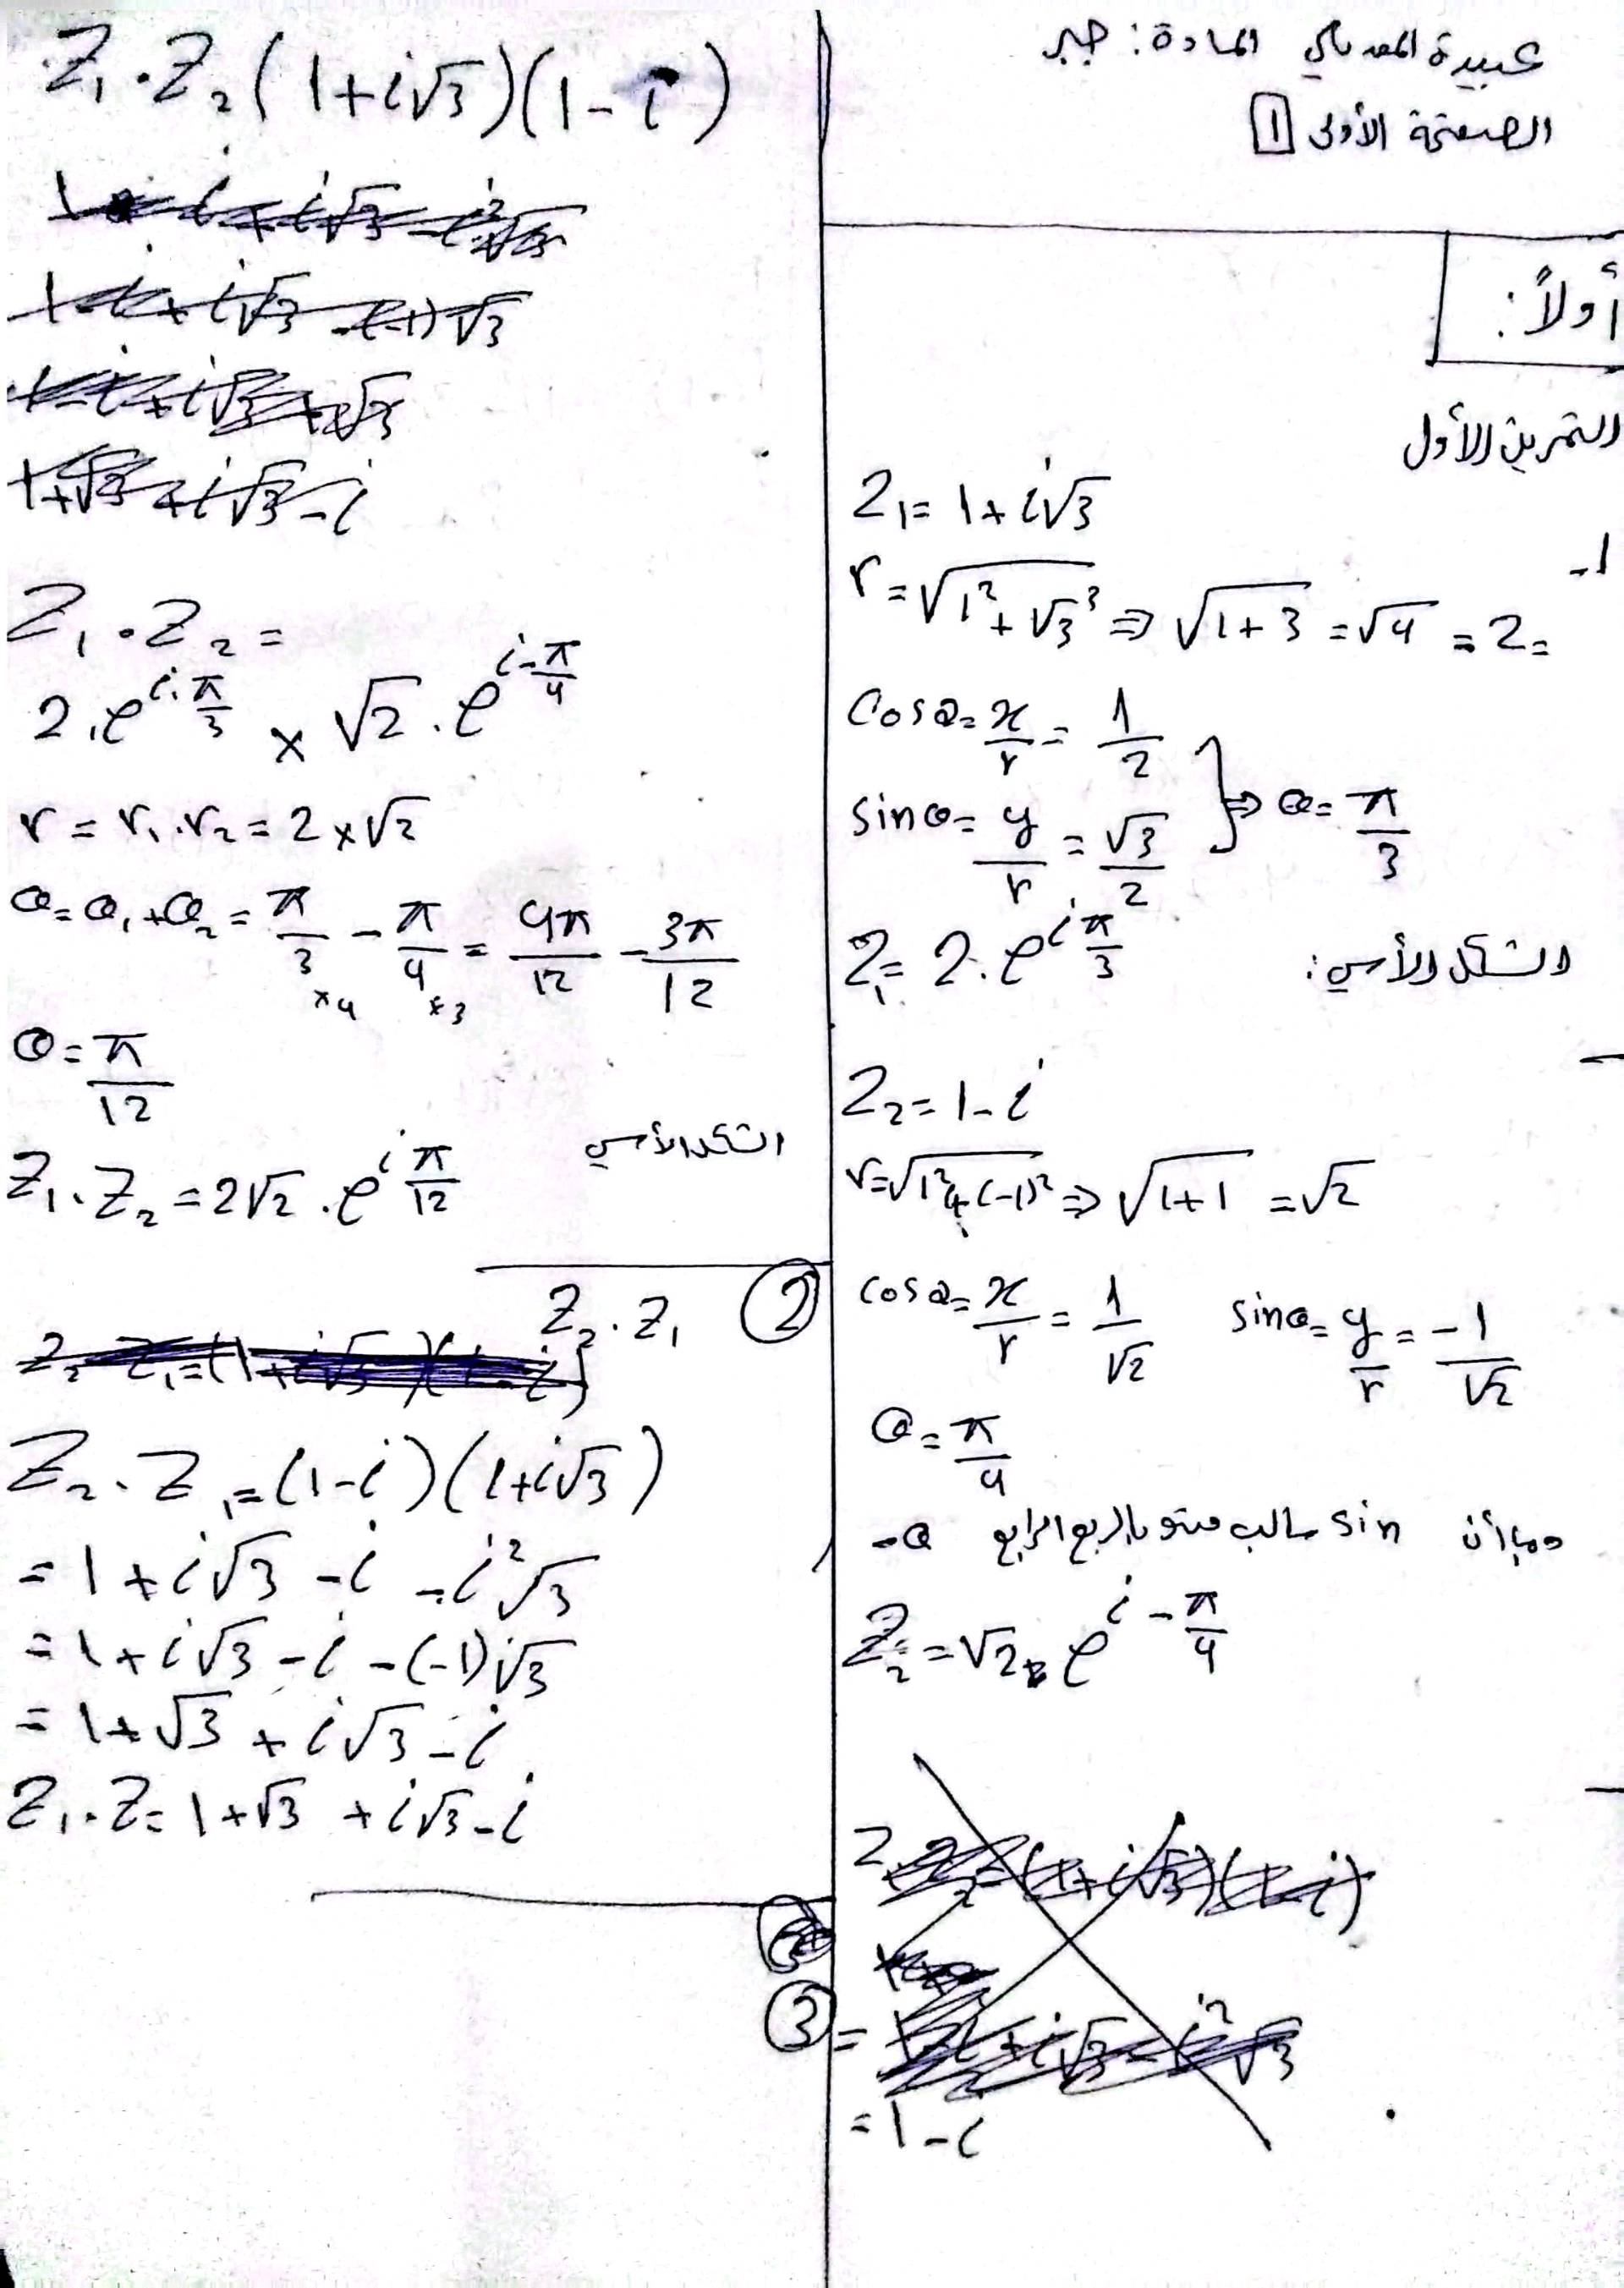 عبيدة المعدماني المادة: جبر
الصفحة الأولى 1
أولاً:
التمرين الأول
1-
Z₁= 1+i√3
r=√1²+√3³ ⇒ √1+3 =√4 = 2=
cosθ= x/r = 1/2
sinθ= y/r = √3/2 } ⇒ θ= π/3
الشكل الأسي: Z₁= 2.e^{i π/3}
Z₂= 1-i
r=√1²+(-1)² ⇒ √1+1 =√2
cosθ= x/r = 1/√2 sinθ= y/r = -1/√2
θ= π/4
وبما أن sin سالب فهو بالربع الرابع -θ
Z₂=√2. e^{i-π/4}
= 1-i
Z₁.Z₂(1+i√3)(1-i)
1-i+i√3-i²√3
1-i+i√3-(-1)√3
1-i+i√3+√3
1+√3+i√3-i
Z₁.Z₂=
2.e^{i.π/3} × √2.e^{i-π/4}
r = r₁.r₂ = 2×√2
θ=θ₁+θ₂= π/3 - π/4 = 4π/12 - 3π/12
×4 ×3
θ= π/12
الشكل الأسي Z₁.Z₂=2√2.e^{i π/12}
② Z₂.Z₁
Z₂.Z₁=(1+i√3)(1-i)
Z₂.Z₁=(1-i)(1+i√3)
=1+i√3-i-i²√3
=1+i√3-i-(-1)√3
=1+√3+i√3-i
Z₁.Z=1+√3+i√3-i
③